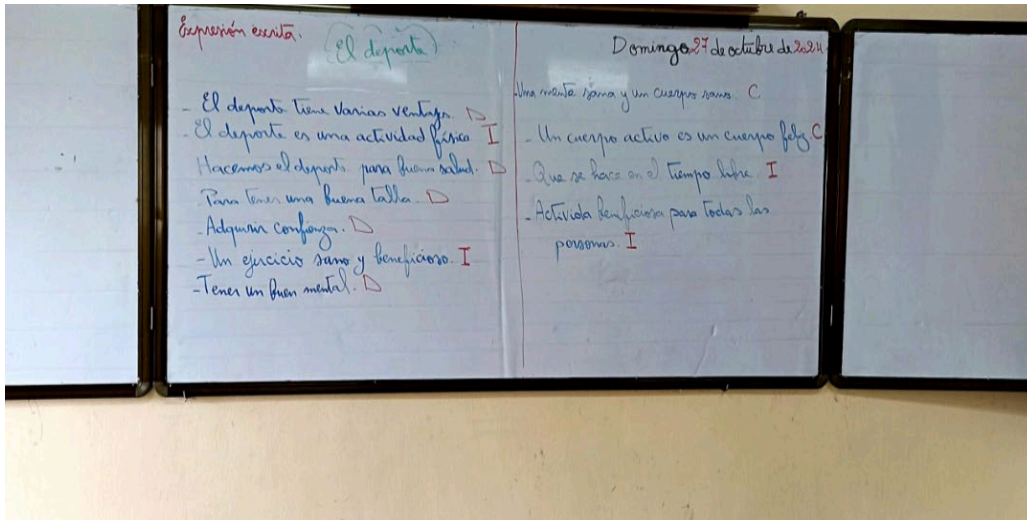 Expresión escrita.
El deporte
- El deporte tiene varias ventajas. D
- El deporte es una actividad física I
Hacemos el deporte para buena salud. D
- Para tener una buena talla. D
- Adquirir confianza. D
- Un ejercicio sano y beneficioso. I
- Tener un buen mental. D
Domingo 27 de octubre de 2024
- Una mente sana y un cuerpo sano. C
- Un cuerpo activo es un cuerpo feliz. C
- Que se hace en el tiempo libre. I
- Activida beneficiosa para todas las
personas. I